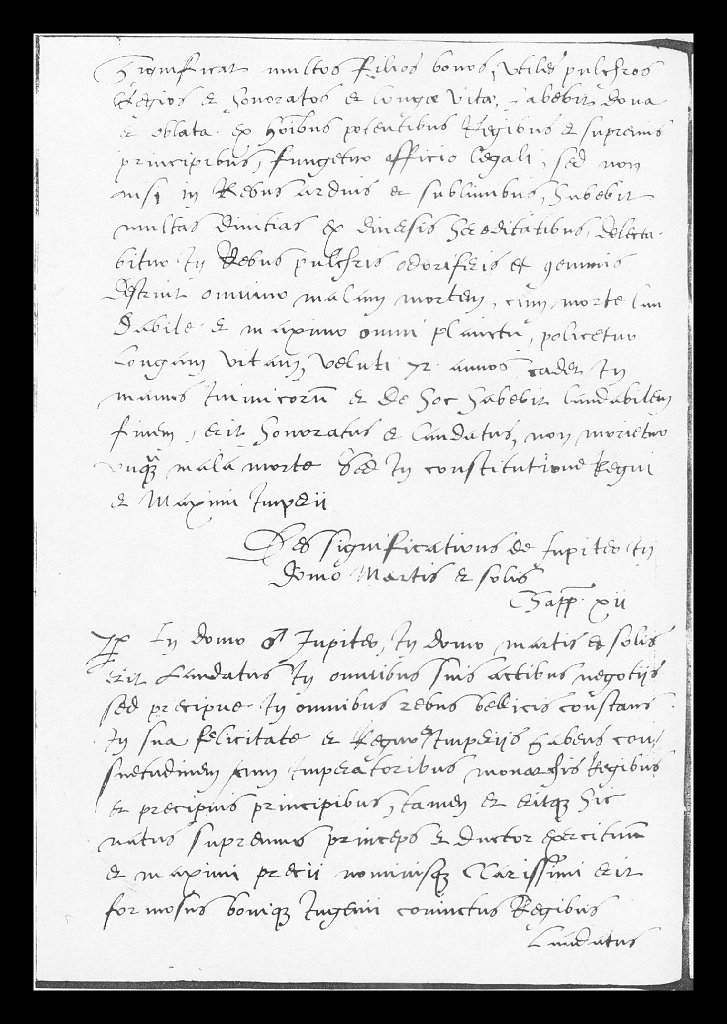 Significat multos filios bonos, utiles pulchros
Regios et honoratos et longæ vitæ, habebit dona
et oblata ex hoībus potentibus Regibus et supremis
principibus, fungetur officio legali, sed non
nisi in Rebus arduis et sublimibus, habebit
multas divitias ex diversis hereditatibus, delecta-
bitur in Rebus pulchris odoriferis et gemmis
omnino malam mortem, cum morte lau
dabile et maximo omni planctu, policetur
Longam vitam, veluti 72 annos cadet in
manus inimicorū et de hoc habebit laudabilem
finem, erit honoratus et laudatus, non morietur
unqȝ mala morte Sed in constitutione Regni
et Maximi Imperii
Des significations de Jupiter in
domo Martis et solis
Chapp. xii
In domo ♂ Jupiter, in domo martis et solis
erit Laudatus in omnibus suis actibus negotijs
sed precipue in omnibus rebus bellicis constans
in sua felicitate et Regno Imperijs habens con
suetudinem cum Imperatoribus monarchis Regibus
et precipuis principibus, tamen et eritqȝ hic
natus supremus princeps et ductor exercituum
et maximi precii nominisqȝ Clarissimi erit
formosus boniqȝ Ingenii coniuctus Regibus
Laudatus